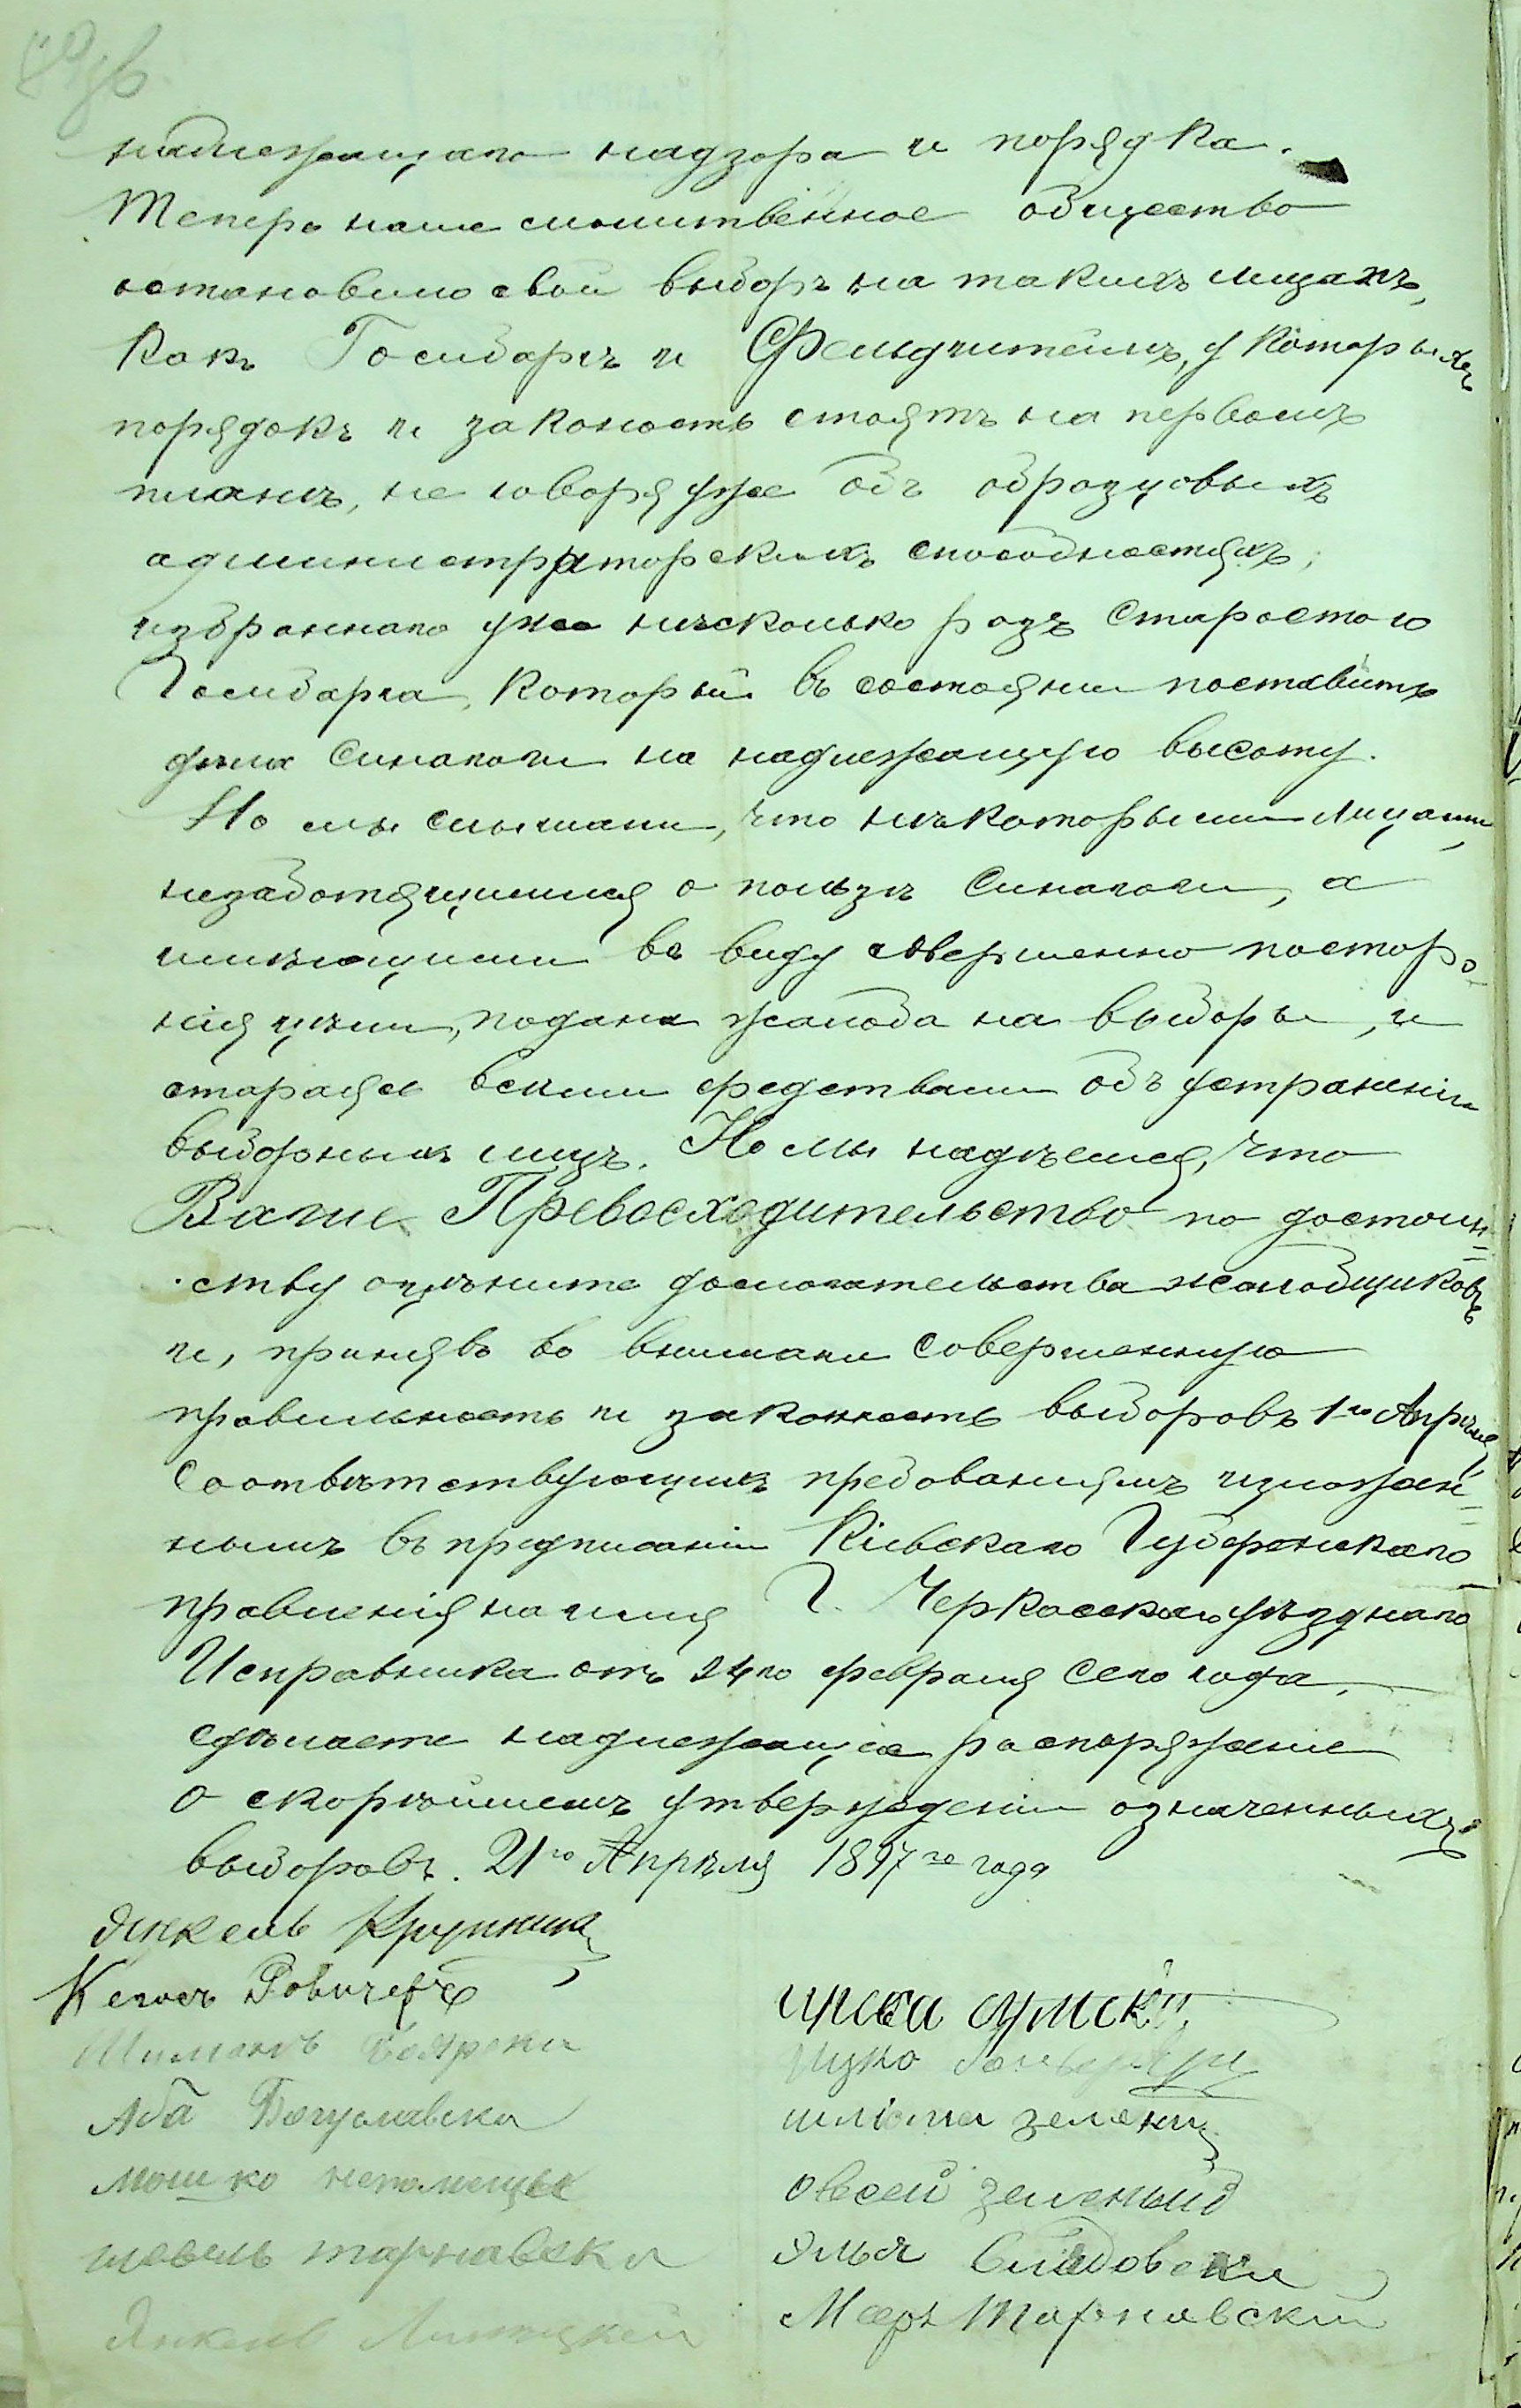 надлежащаго надзора и порядка.
Теперь наше молитвенное общество
остановило свой выборъ на такихъ лицахъ,
какъ Гольдбергъ и Фельдштейнъ, у которыхъ
порядокъ и законость стоятъ на первомъ
планѣ, не говоря уже объ образцовыхъ
администраторскихъ способностяхъ,
избраннаго уже нѣсколько разъ старостою
который въ состояни поставить
дѣла Синагоги на надлежащую высоту.
Но мы слышали, что нѣкоторыми лицами,
незаботящимися о пользѣ Синагоги, а
имѣющими въ виду совершенно посторо-
нія цѣли, подана жалоба на выборы, и
стараясь всеми средствами объ устраненіи
выборныхъ лицъ. Но мы надѣемся, что
Ваше Превосходительство по достоин=
ству оцѣните домогательства жалобщиковъ
и, принявъ во внимани совершенную
правильность и законность выборовъ 1-го Апрѣля
соотвѣтствующихъ требованіямъ изложен=
нымъ въ предписаніи Кіевскаго Губернскаго
правленія на имя Г. Черкасскаго уѣзднаго
Исправника отъ 24го февраля сего года,
сдѣлаете надлежащее распоряженіе
о скорѣйшемъ утвержденіи означенныхъ
выборовъ. 21го Апрѣля 1897го года
Янкель Крупник
Шимонъ Боярски
Аба Богуславски
Мошко
шевель тарнавски
Янкель
сумски
Ицко
шліома зелены
овсей зеленый
Элья
Мееръ Тарновский